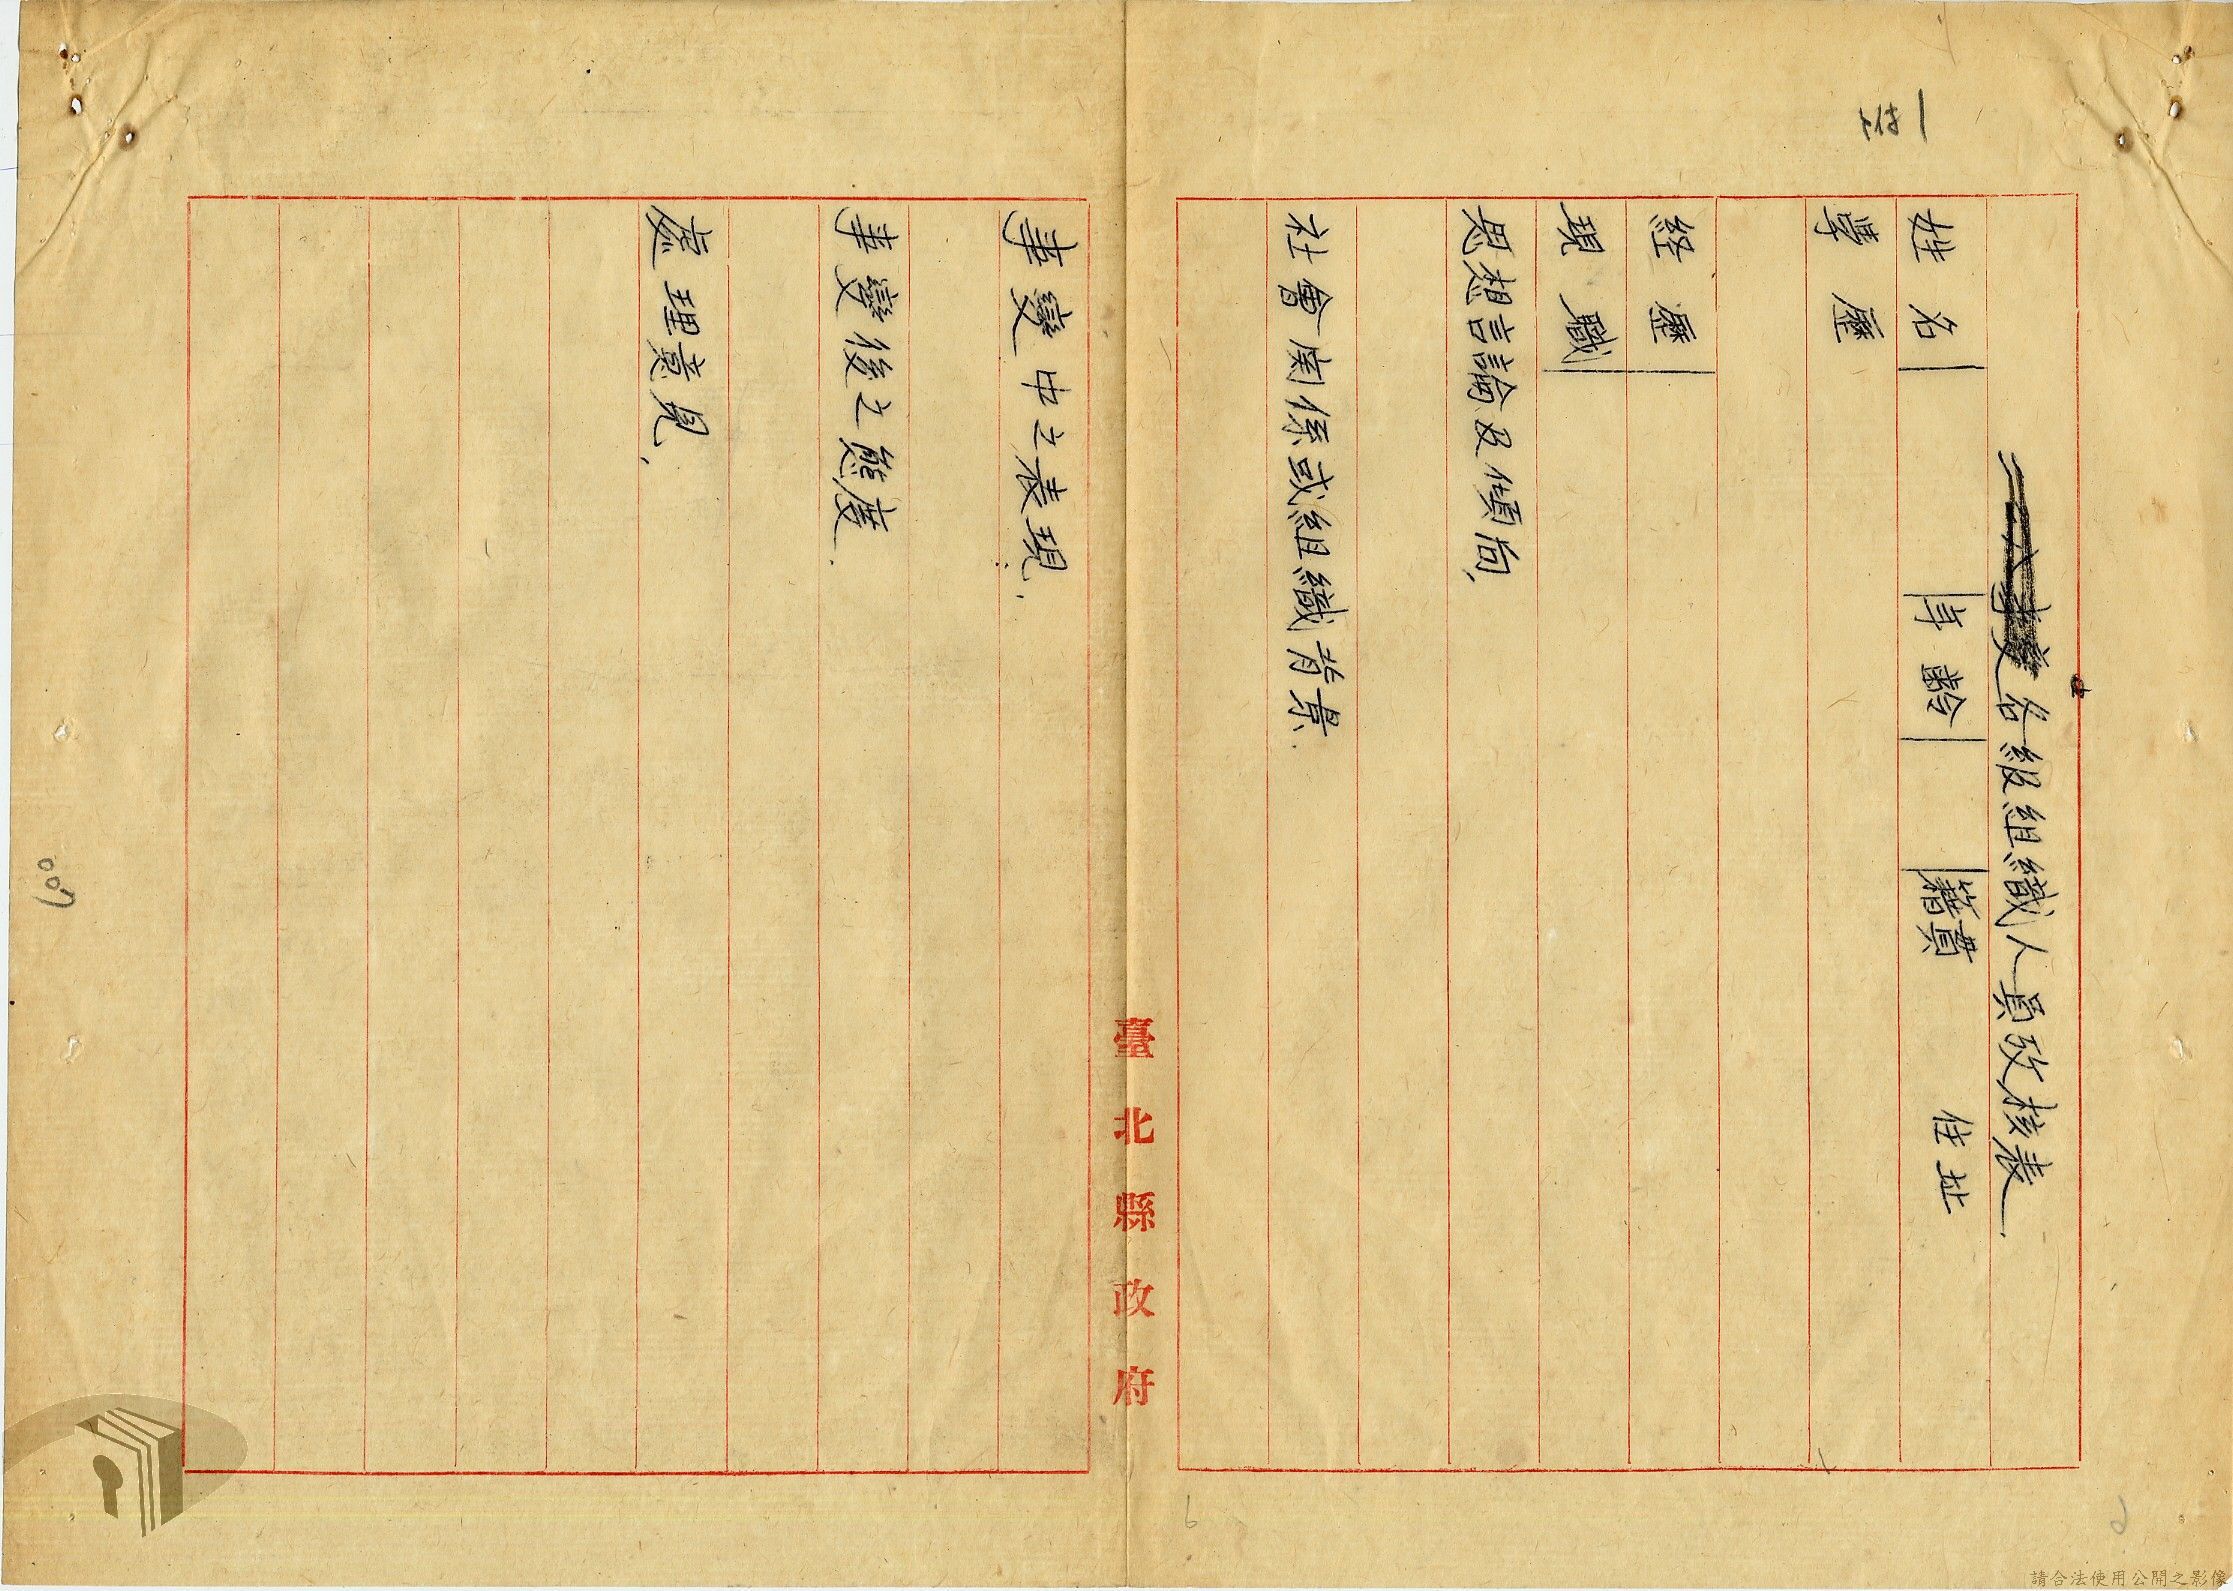 各級組織人員攷核表
姓名 年齡 籍貫 住址
學歷
經歷
現職
思想言論及傾向
社會関係或組織背景
臺北縣政府
事變中之表現
事變後之態度
處理意見
請合法使用公開之影像